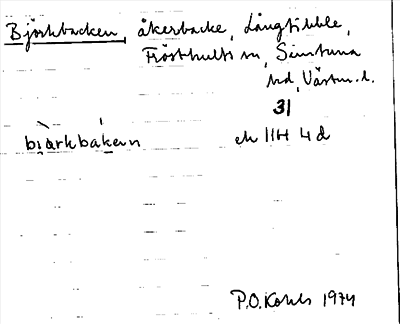 Björkbacken, åkerbacke, Långtibble,
Frösthults sn, Simtuna
hd, Västm. l.
31
bjärkbakεn ek 11H 4d
P.O. Kohls 1974